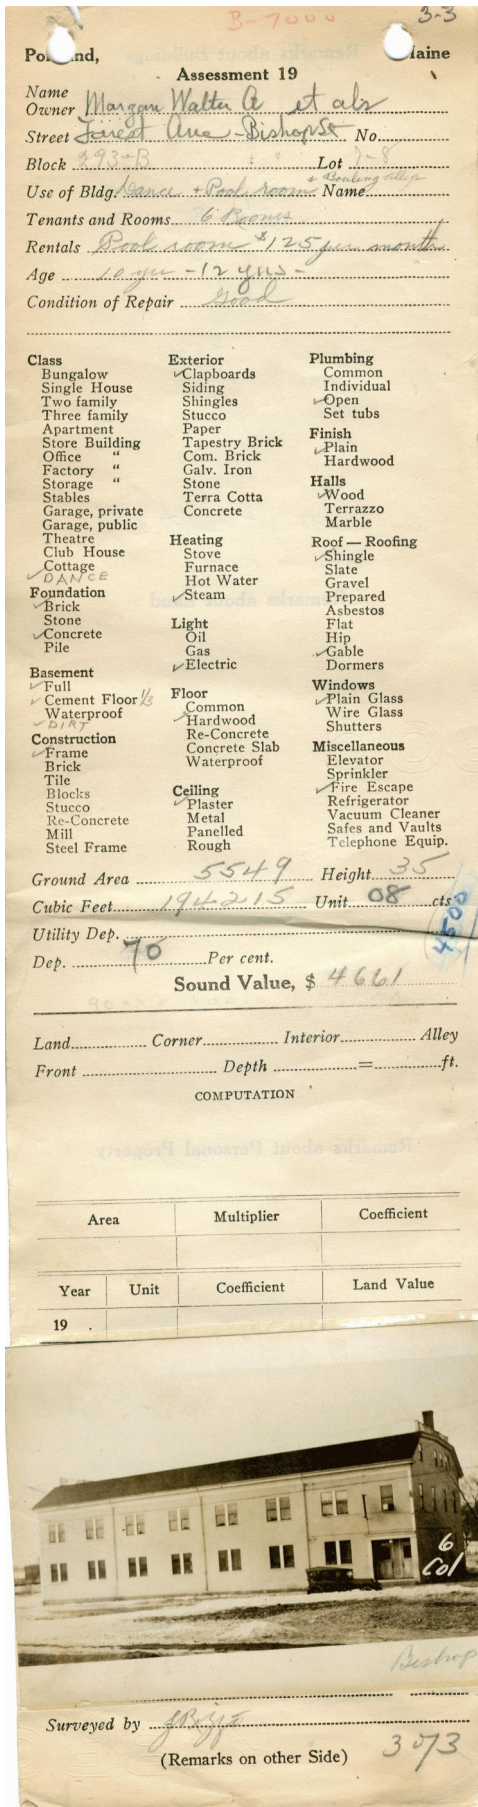 B-7000
3-3
Portland, Maine
Assessment 19
Name
Owner Morgan Walter A et als
Street Forest Ave - Bishop St No.
Block 293-B Lot 7-8
Use of Bldg. Dance + Pool room + Bowling Alleys Name
Tenants and Rooms 6 Rooms
Rentals Pool room $125 per month
Age 10 yrs - 12 yrs -
Condition of Repair Good
Class
Bungalow
Single House
Two family
Three family
Apartment
Store Building
Office "
Factory "
Storage "
Stables
Garage, private
Garage, public
Theatre
Club House
Cottage
✓ DANCE
Foundation
✓ Brick
Stone
✓ Concrete
Pile
Basement
✓ Full
✓ Cement Floor 1/3
Waterproof
✓ DIRT
Construction
✓ Frame
Brick
Tile
Blocks
Stucco
Re-Concrete
Mill
Steel Frame
Exterior
✓ Clapboards
Siding
Shingles
Stucco
Paper
Tapestry Brick
Com. Brick
Galv. Iron
Stone
Terra Cotta
Concrete
Heating
Stove
Furnace
Hot Water
✓ Steam
Light
Oil
Gas
✓ Electric
Floor
Common
✓ Hardwood
Re-Concrete
Concrete Slab
Waterproof
Ceiling
✓ Plaster
Metal
Panelled
Rough
Plumbing
Common
Individual
✓ Open
Set tubs
Finish
✓ Plain
Hardwood
Halls
✓ Wood
Terrazzo
Marble
Roof — Roofing
✓ Shingle
Slate
Gravel
Prepared
Asbestos
Flat
Hip
✓ Gable
Dormers
Windows
✓ Plain Glass
Wire Glass
Shutters
Miscellaneous
Elevator
Sprinkler
✓ Fire Escape
Refrigerator
Vacuum Cleaner
Safes and Vaults
Telephone Equip.
Ground Area 5549 Height 35
Cubic Feet 194215 Unit 08 cts
4500
Utility Dep.
Dep. 70 Per cent.
Sound Value, $ 4661
Land Corner Interior Alley
Front Depth = ft.
COMPUTATION
Area Multiplier Coefficient
Year Unit Coefficient Land Value
19 .
6
Col
Bishop
Surveyed by
(Remarks on other Side)
3 of 3